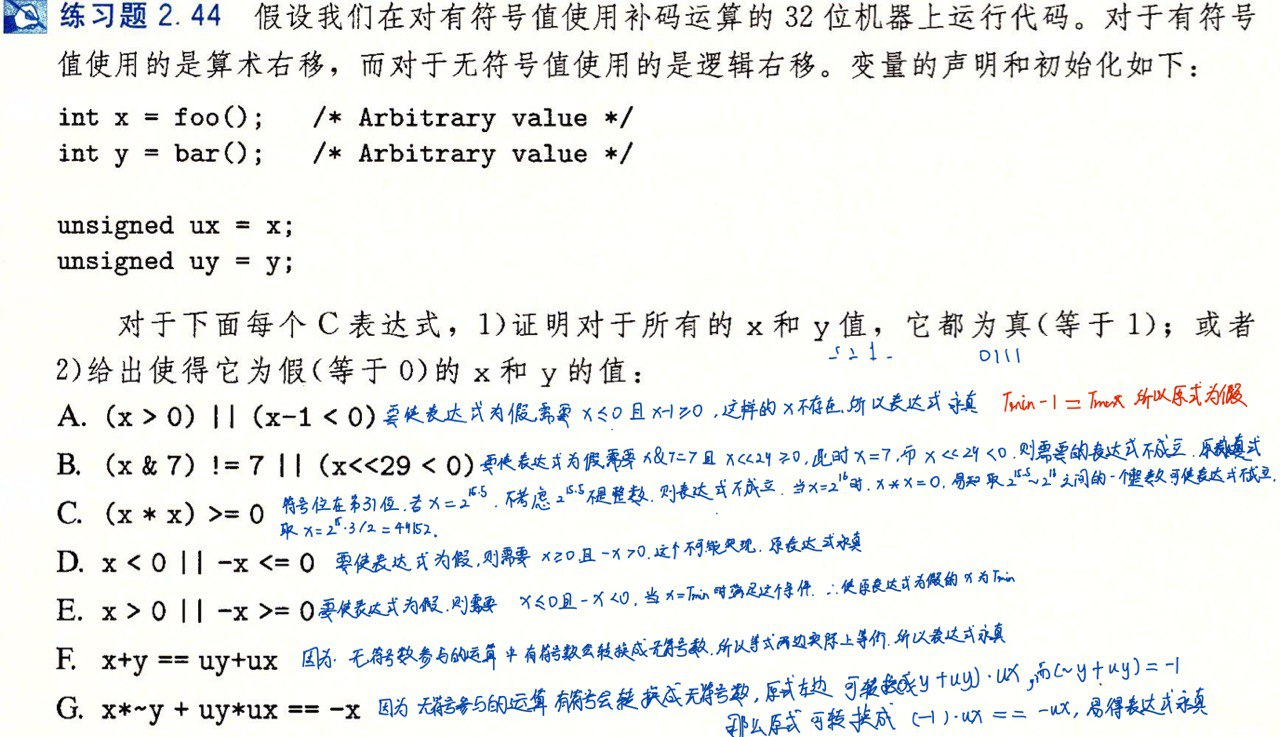 练习题 2.44 假设我们在对有符号值使用补码运算的 32 位机器上运行代码。对于有符号
值使用的是算术右移，而对于无符号值使用的是逻辑右移。变量的声明和初始化如下：
int x = foo(); /* Arbitrary value */
int y = bar(); /* Arbitrary value */
unsigned ux = x;
unsigned uy = y;
对于下面每个 C 表达式，1)证明对于所有的 x 和 y 值，它都为真(等于 1)；或者
0111
2)给出使得它为假(等于 0)的 x 和 y 的值：
A. (x > 0) || (x-1 < 0) 要使表达式为假,需要 x≤0 且 x-1≥0 ,这样的 x 不存在,所以表达式永真 Tmin-1=Tmax 所以原式为假
B. (x & 7) != 7 || (x<<29 < 0) 要使表达式为假需要 x&7=7 且 x<<29 ≥0, 此时 x=7, 而 x<<29 <0. 则需要的表达式不成立.
C. (x * x) >= 0 符号位在第31位. 若 x=2^15.5. 不考虑 2^15.5 不是整数. 则表达式不成立. 当 x=2^16 时. x*x=0. 易知取 2^15.5~2^16 之间的一个整数可使表达式不成立.
取 x=2^15·3/2=49152.
D. x < 0 || -x <= 0 要使表达式为假,则需要 x≥0 且 -x>0. 这个不可能出现. 原表达式永真
E. x > 0 || -x >= 0 要使表达式为假.则需要 x≤0 且 -x<0, 当 x=Tmin 时满足这个条件. ∴使原表达式为假的 x 为 Tmin
F. x+y == uy+ux 因为. 无符号数参与的运算中有符号数会转换成无符号数.所以等式两边实际上等价.所以表达式永真
G. x*~y + uy*ux == -x 因为无符号参与的运算有符号会转换成无符号数, 原式左边 可转换成(~y+uy)·ux ,而(~y+uy)=-1
那么原式可转换成 (-1)·ux == -ux, 易得表达式永真